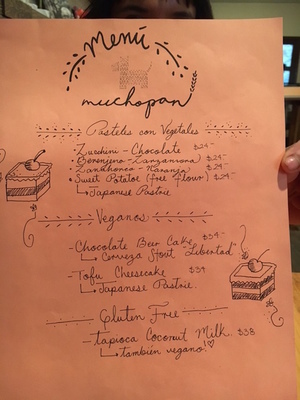 Menú
muchopan
Pasteles con Vegetales
· Zucchini - Chocolate $24-
· Berenjena - Zanganrona $24-
· Zanahoria - Naranja $24-
· Sweet Potatoe (free flour) $24-
Japanese Pastrie
Veganos
- Chocolate Beer Cake $34-
Cerveza Stout "Libertad"
- Tofu Cheesecake $39
Japanese Pastrie.
Gluten Free
- tapioca Coconut Milk. $38
también vegano!